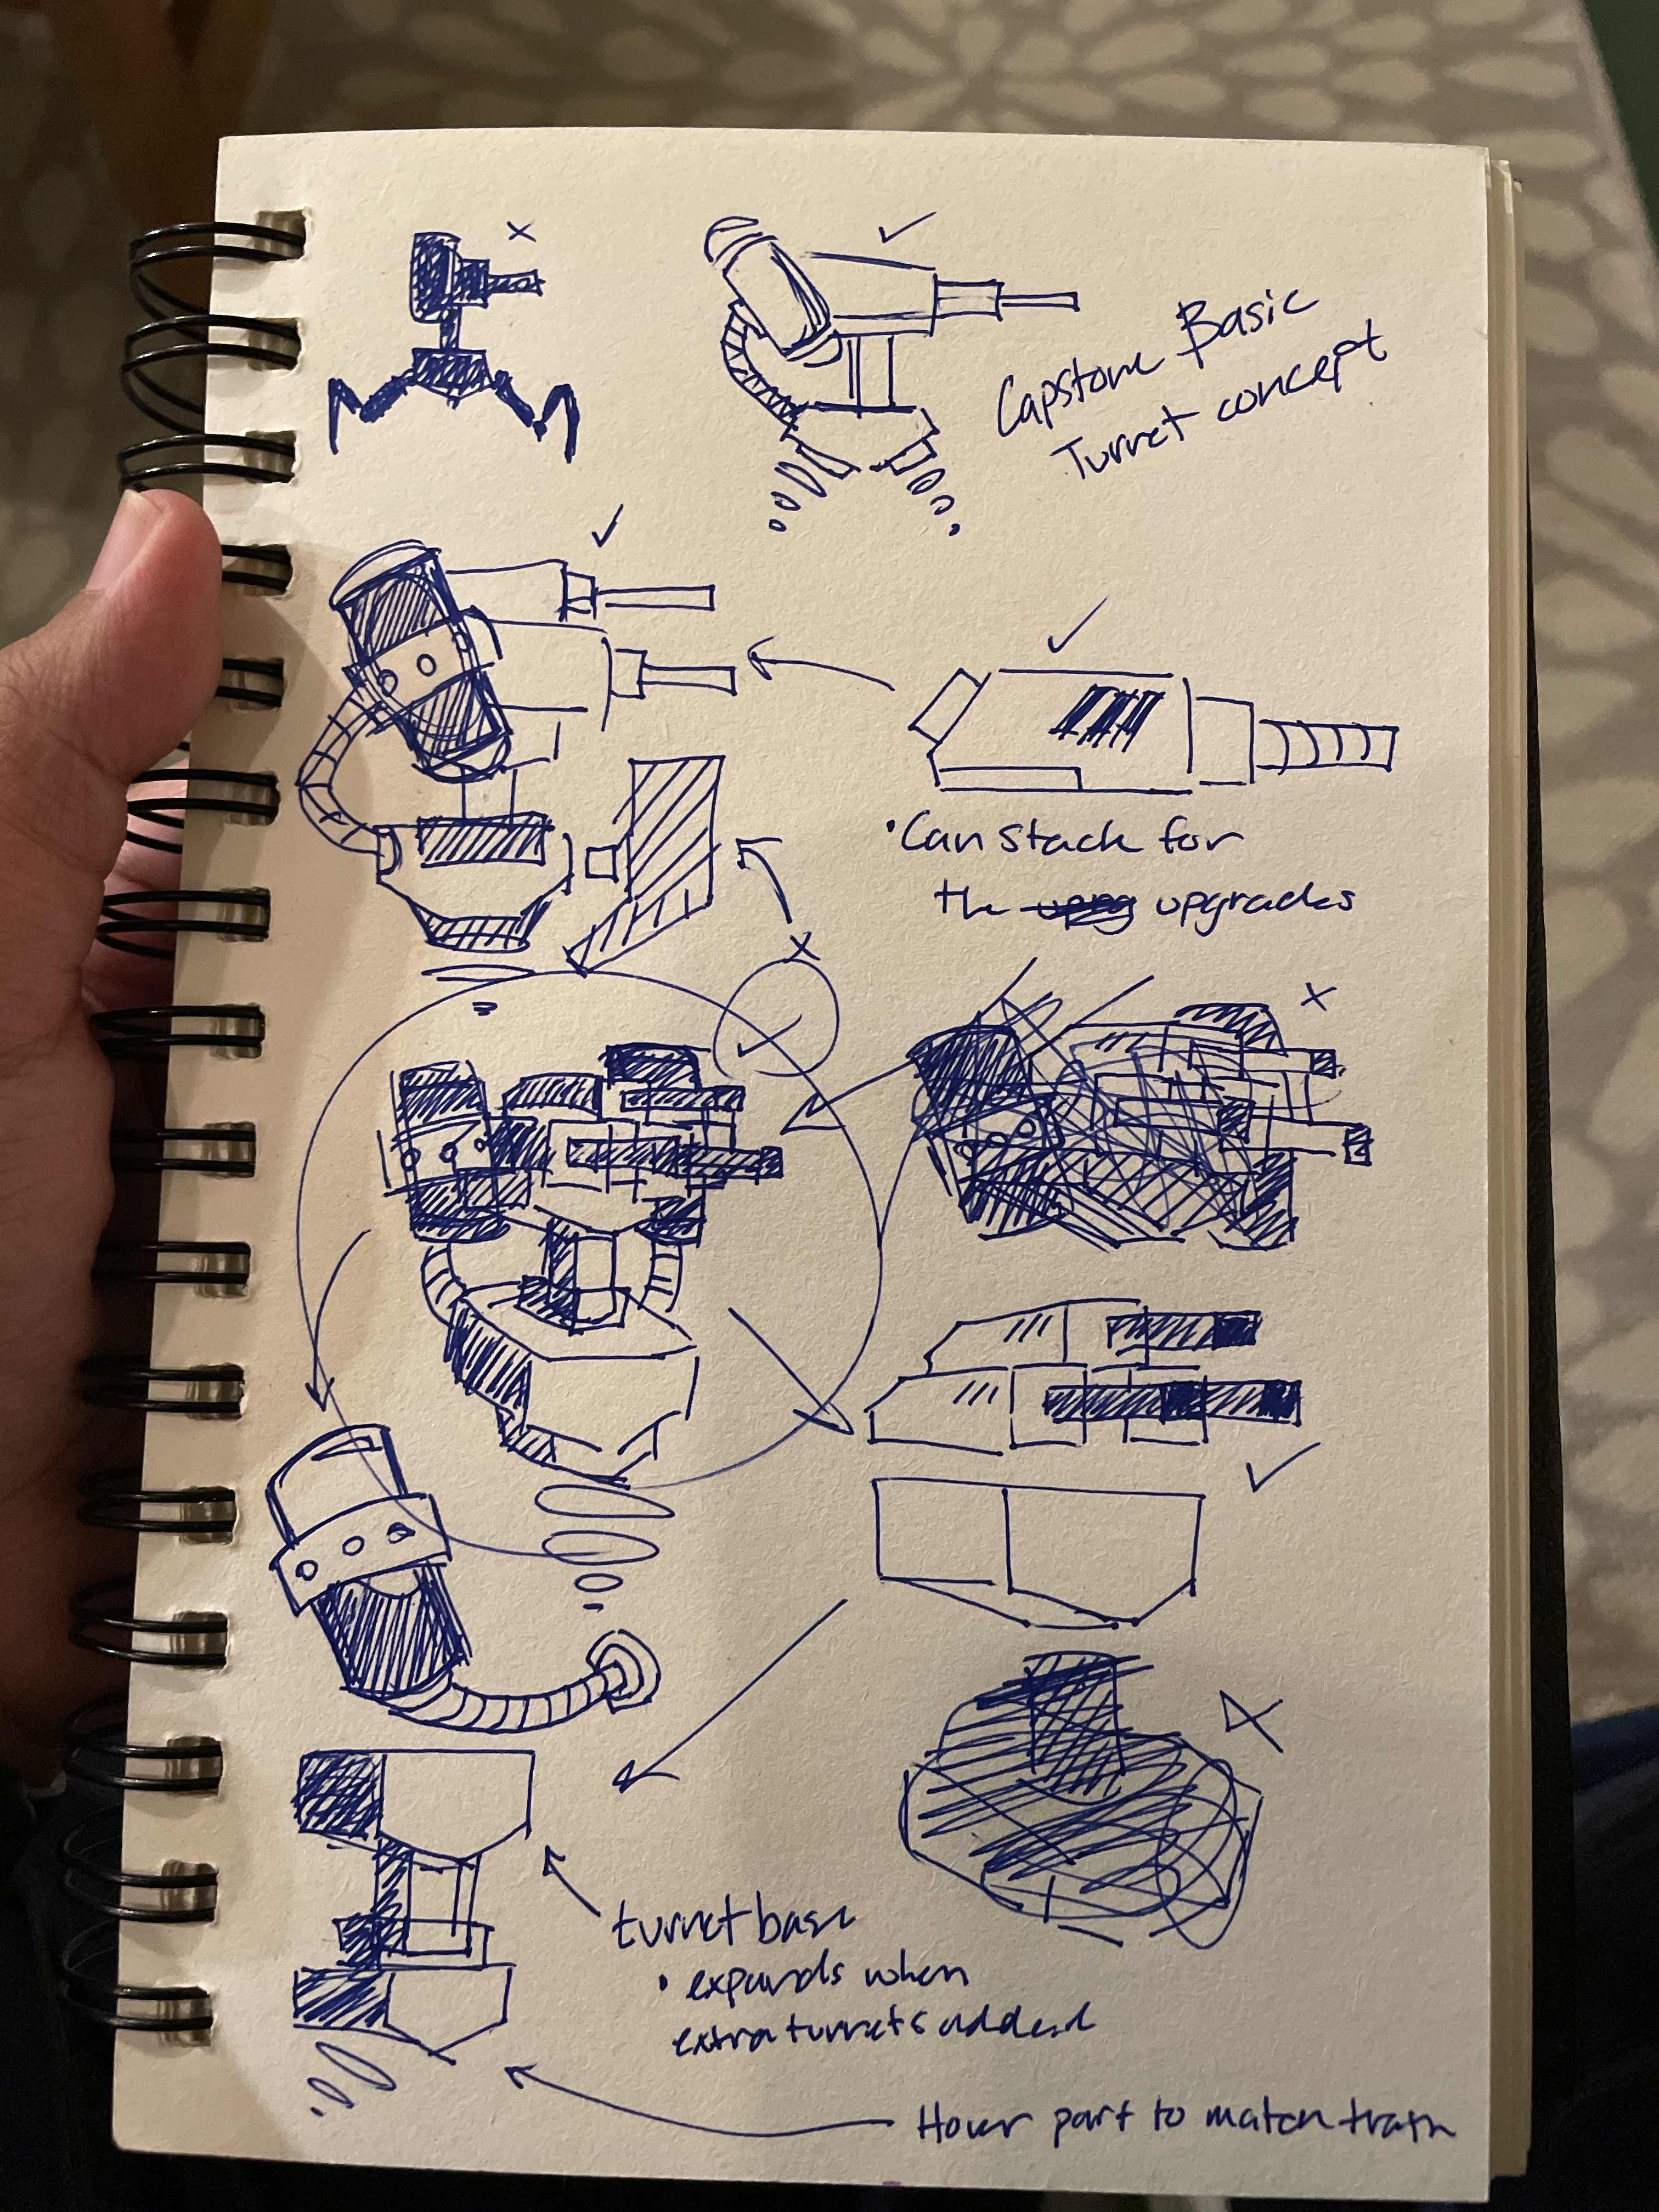 Capstone Basic
Turret concept
• Can stack for
the upgrades
turret base
• expands when
extra turrets added
Hover part to match train